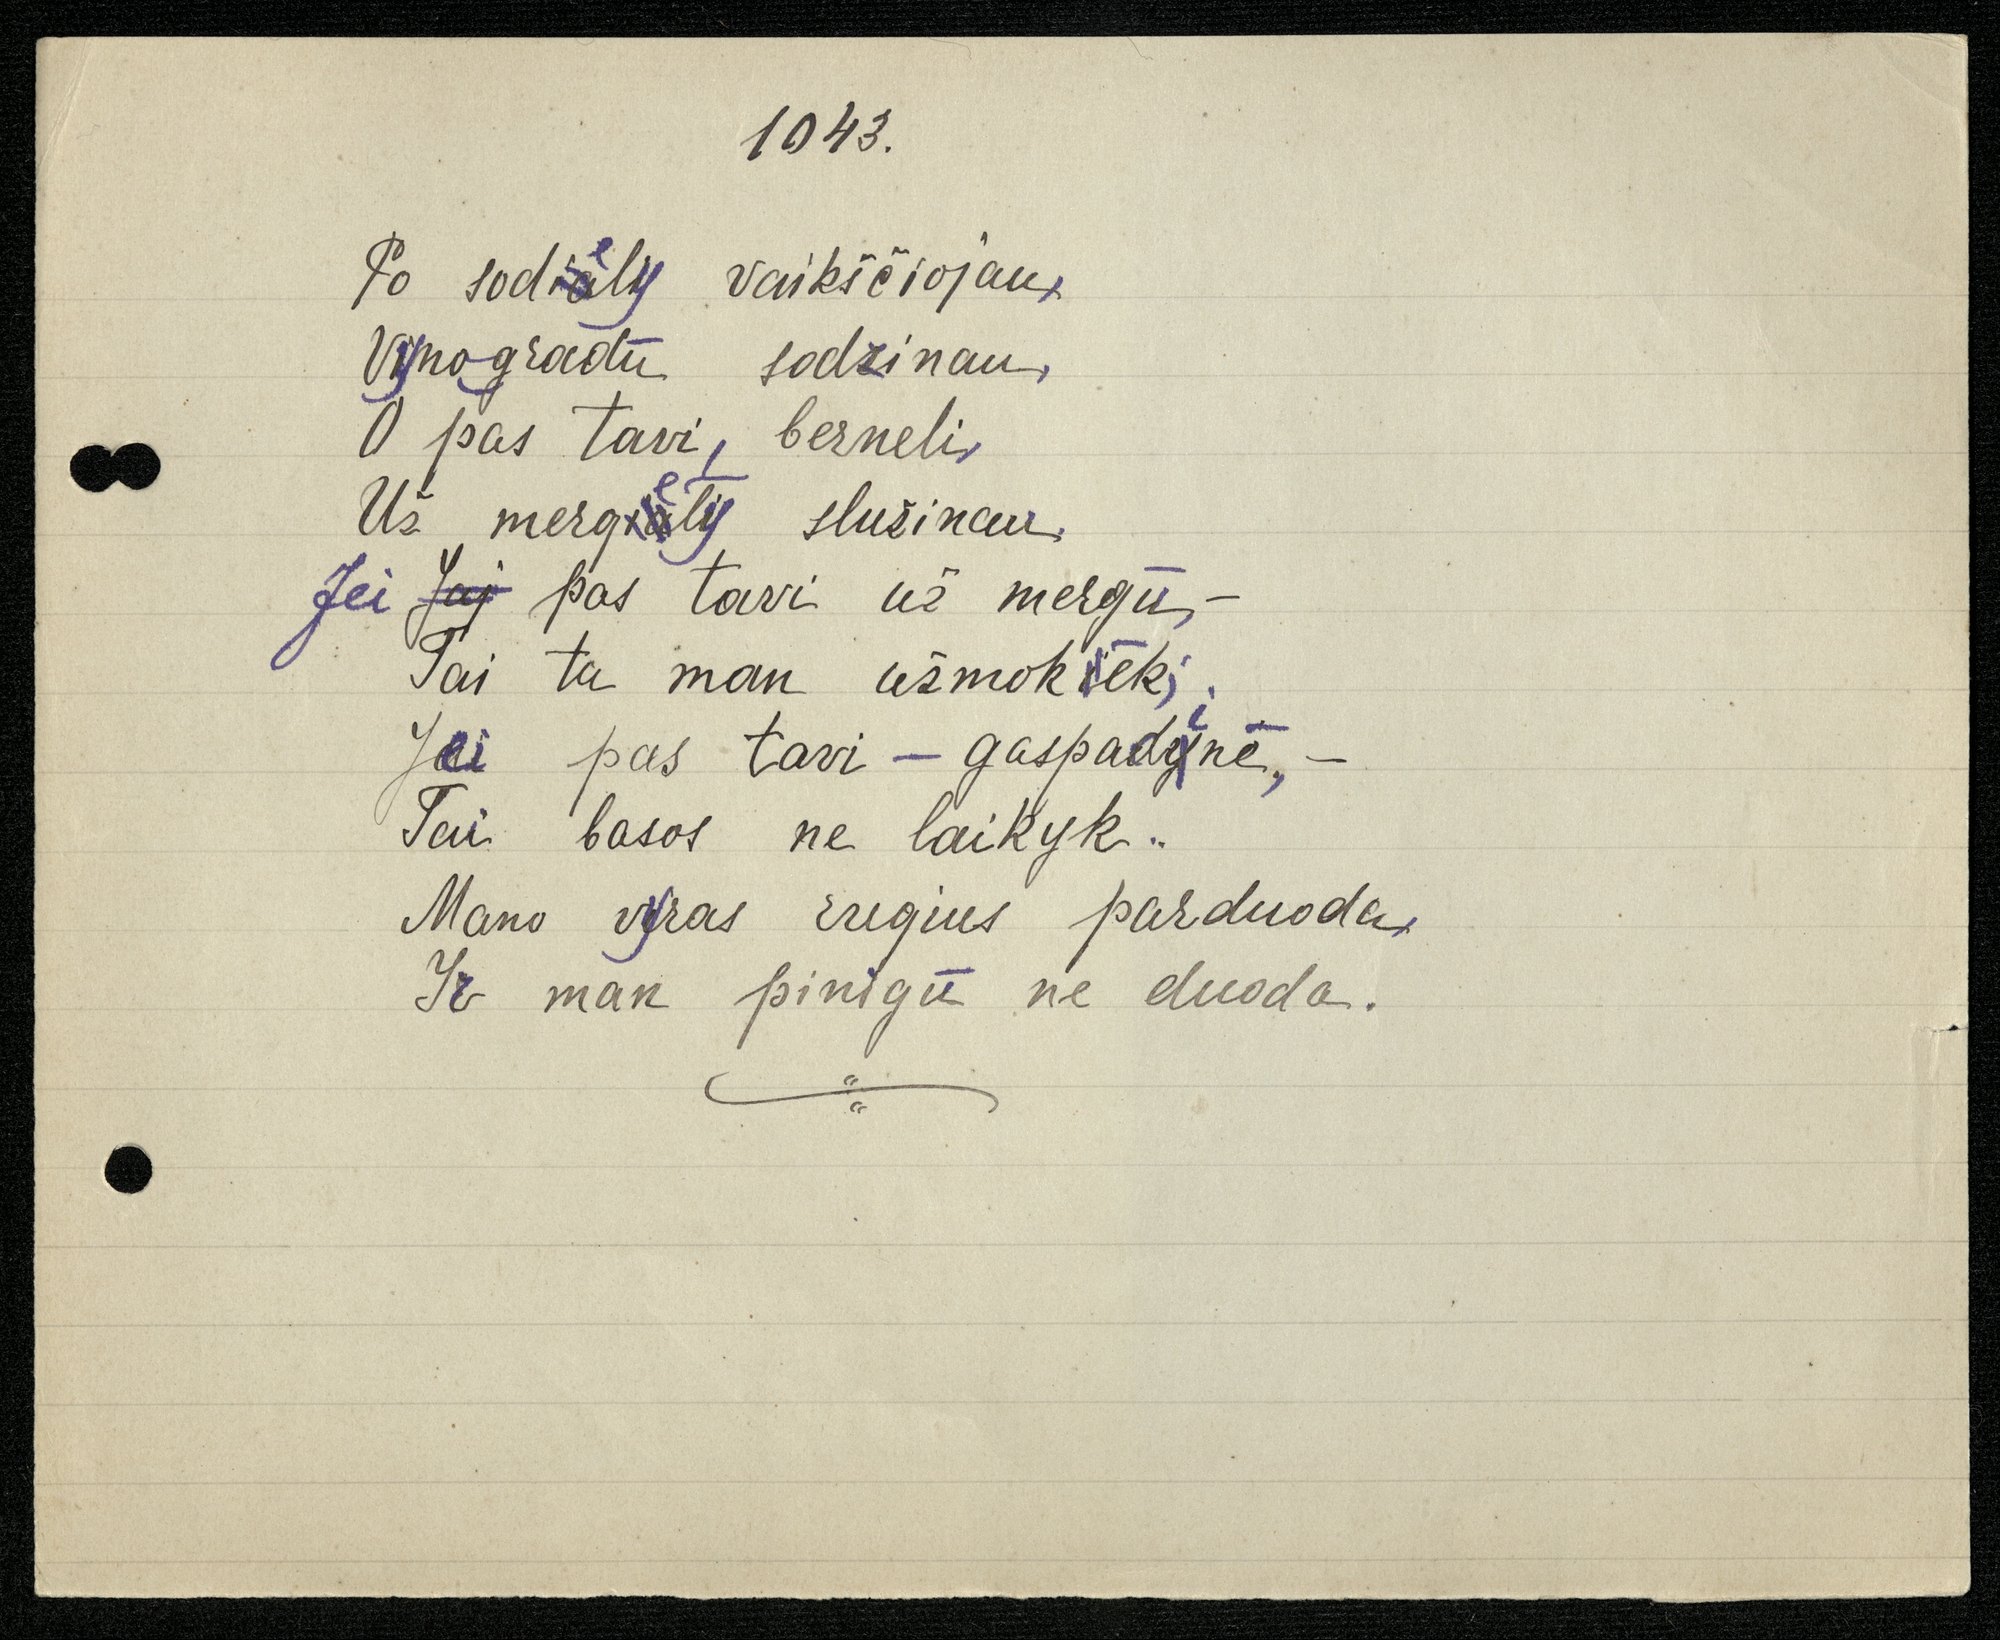 1043.
Po sodely vaikščiojau,
Vynogradū sodzinau,
O pas tavi, berneli,
Už mergely služinau.
Jei Jaj pas tavi už mergū, –
Tai tu man užmokėk;
Jei pas tavi – gaspadinē, –
Tai basos ne laikyk.
Mano vyras rugius parduoda,
Ir man pinigū ne duoda.